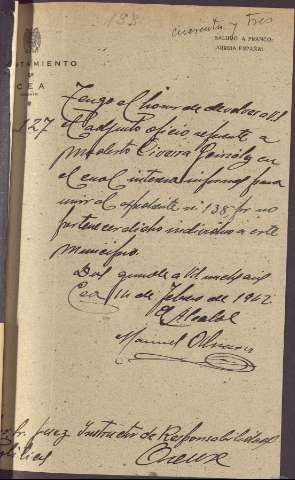 138
cuarenta y tres
SALUDO A FRANCO:
¡ARRIBA ESPAÑA!
TAMIENTO
CEA
127
Tengo el honor de devolver a VI
el adjunto oficio referente a
Modesto en
el cual interesa informes para
unir al expediente nº 138 por no
pertenecer dicho individuo a este
municipio.
Dios guarde a VI muchos años
Cea 14 de Febrero de 1942
El Alcalde
Manuel
Sr. Juez Instructor de Responsabilidades
Políticas Orense